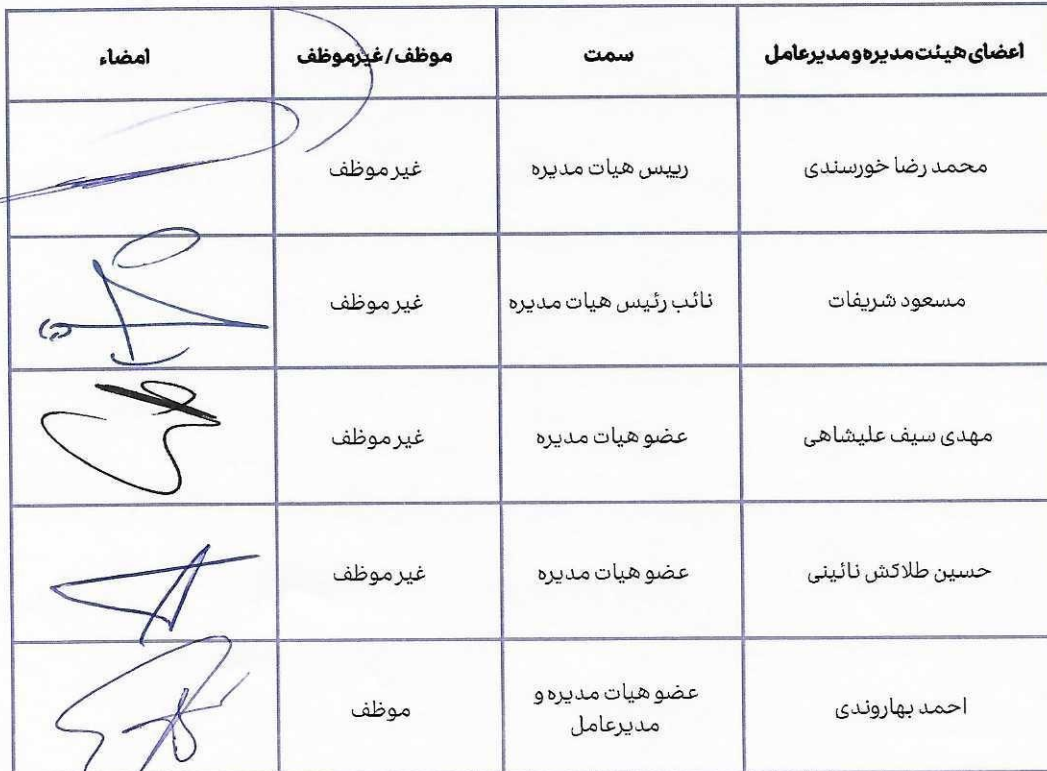 اعضای هیئت مدیره و مدیرعامل سمت موظف / غیرموظف امضاء
محمد رضا خورسندی رییس هیات مدیره غیر موظف
مسعود شریفات نائب رئیس هیات مدیره غیر موظف
مهدی سیف علیشاهی عضو هیات مدیره غیر موظف
حسین طلاکش نائینی عضو هیات مدیره غیر موظف
احمد بهاروندی عضو هیات مدیره و
مدیرعامل موظف